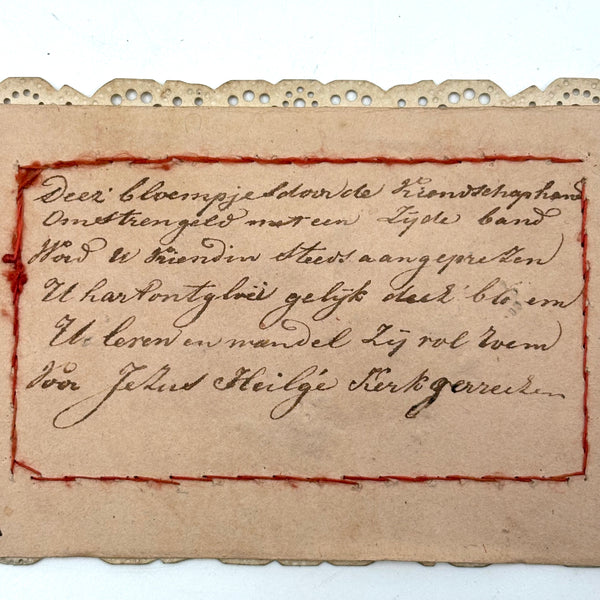 Deez' bloempjes door de Vriendschap hand
Omstrengeld met een Zijde band
Word U Vriendin steeds aangeprezen
U hart ontgloei gelijk deez' bloem
U leven en wandel Zij vol roem
Voor Jezus Heilge Kerk gerrezen